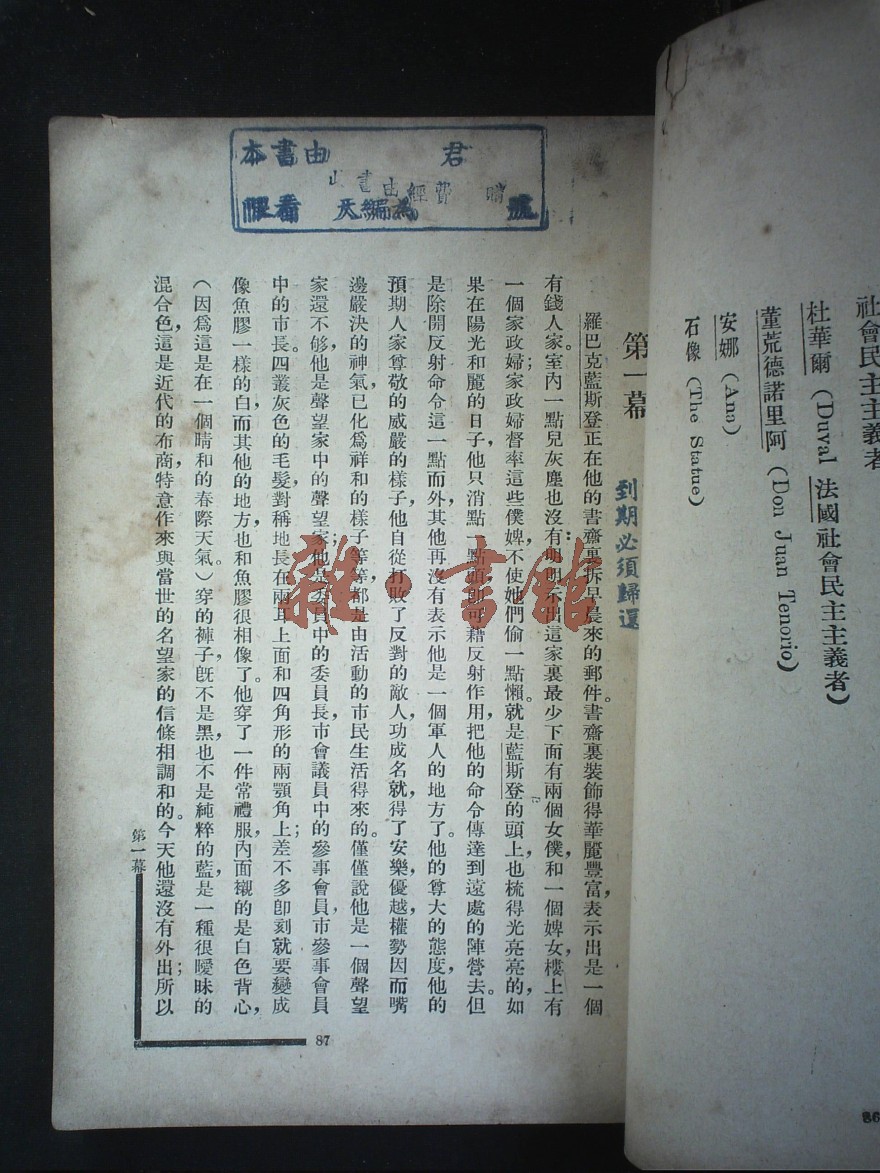 社會民主主義者
杜華爾（Duval 法國社會民主主義者）
董荒德諾里阿（Don Juan Tenorio）
安娜（Ana）
石像（The Statue）
86
本書由 君
此書由經費
限看 天編為 號
到期必須歸還
第一幕
羅巴克藍斯登正在他的書齋裏拆早晨來的郵件。書齋裏裝飾得華麗豐富，表示出是一個
有錢人家。室內一點兒灰塵也沒有：明明示出這家裏最少下面有兩個女僕，和一個婢女，樓上有
一個家政婦；家政婦督率這些僕婢，不使她們偷一點懶。就是藍斯登的頭上，也梳得光亮亮的，如
果在陽光和麗的日子，他只消點一點頭，即可藉反射作用，把他的命令傳達到遠處的陣營去。但
是除開反射命令這一點而外，其他再沒有表示他是一個軍人的地方了。他的尊大的態度，他的
預期人家尊敬的威嚴的樣子，他自從打敗了反對的敵人，功成名就，得了安樂，優越，權勢因而嘴
邊嚴決的神氣，已化為祥和的樣子等等，都是由活動的市民生活得來的。僅僅說他是一個聲望
家還不够，他是聲望家中的聲望家；他是委員中的委員長，市會議員中的參事會員，市參事會員
中的市長。四叢灰色的毛髮，對稱地長在兩耳上面和四角形的兩顎角上；差不多卽刻就要變成
像魚膠一樣的白，而其他的地方，也和魚膠很相像了。他穿了一件常禮服，內面襯的是白色背心，
（因為這是在一個晴和的春際天氣。）穿的褲子，旣不是黑，也不是純粹的藍，是一種很曖昧的
混合色，這是近代的布商，特意作來與當世的名望家的信條相調和的。今天他還沒有外出；所以
第一幕
87
雜·書館